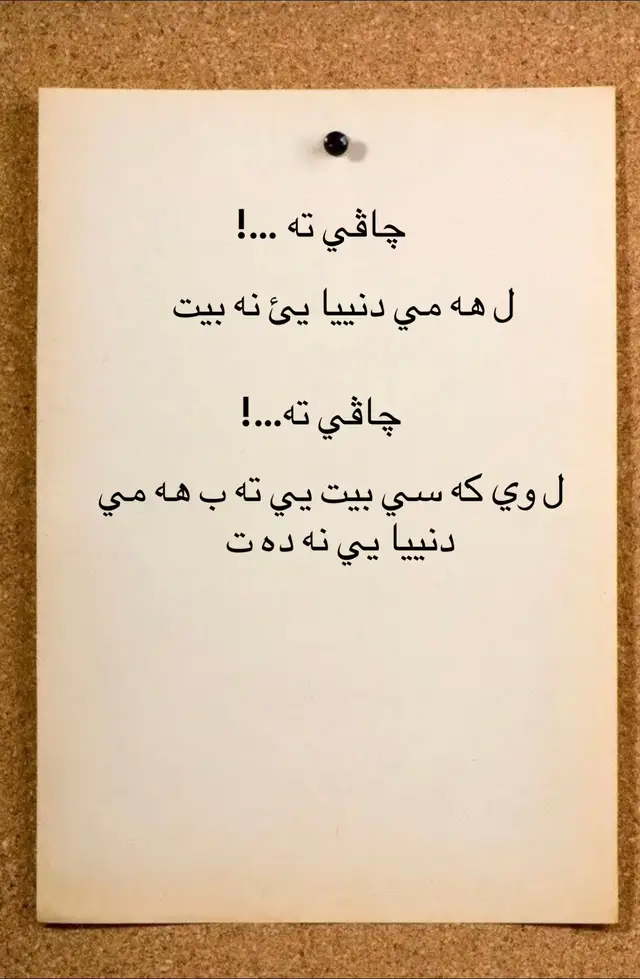 چاڤي ته ...!
ل هه مي دنييا يئ نه بيت
چاڤي ته...!
ل وي كه سي بيت يي ته ب هه مي
دنييا يي نه ده ت